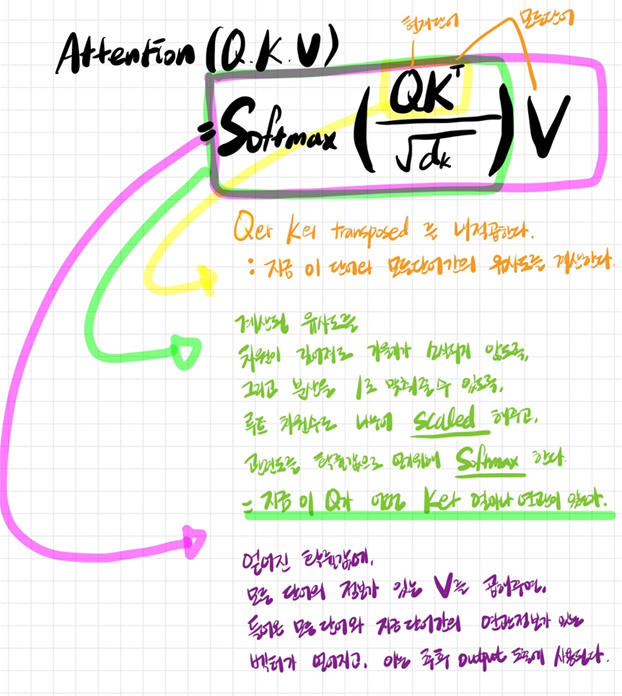 현재단어 모든단어
Attention (Q.K.V)
= Softmax (QKᵀ / √dk) V
Q와 K의 transposed 를 내적곱한다.
: 지금 이 단어와 모든단어간의 유사도를 계산한다.
계산된 유사도를
차원이 길어져도 기울기가 소실되지 않도록,
그리고 분산을 1로 맞춰줄수 있도록,
루트 차원수로 나누어 scaled 해주고,
관련도를 확률값으로 얻기위해 Softmax 한다.
= 지금 이 Q가 어떤 K와 얼마나 연관이 있는가.
얻어진 확률값에,
모든 단어의 정보가 있는 V를 곱해주면,
들어온 모든단어와 지금단어간의 연관정보가 있는
벡터가 얻어지고, 이는 추후 output 도출에 사용된다.